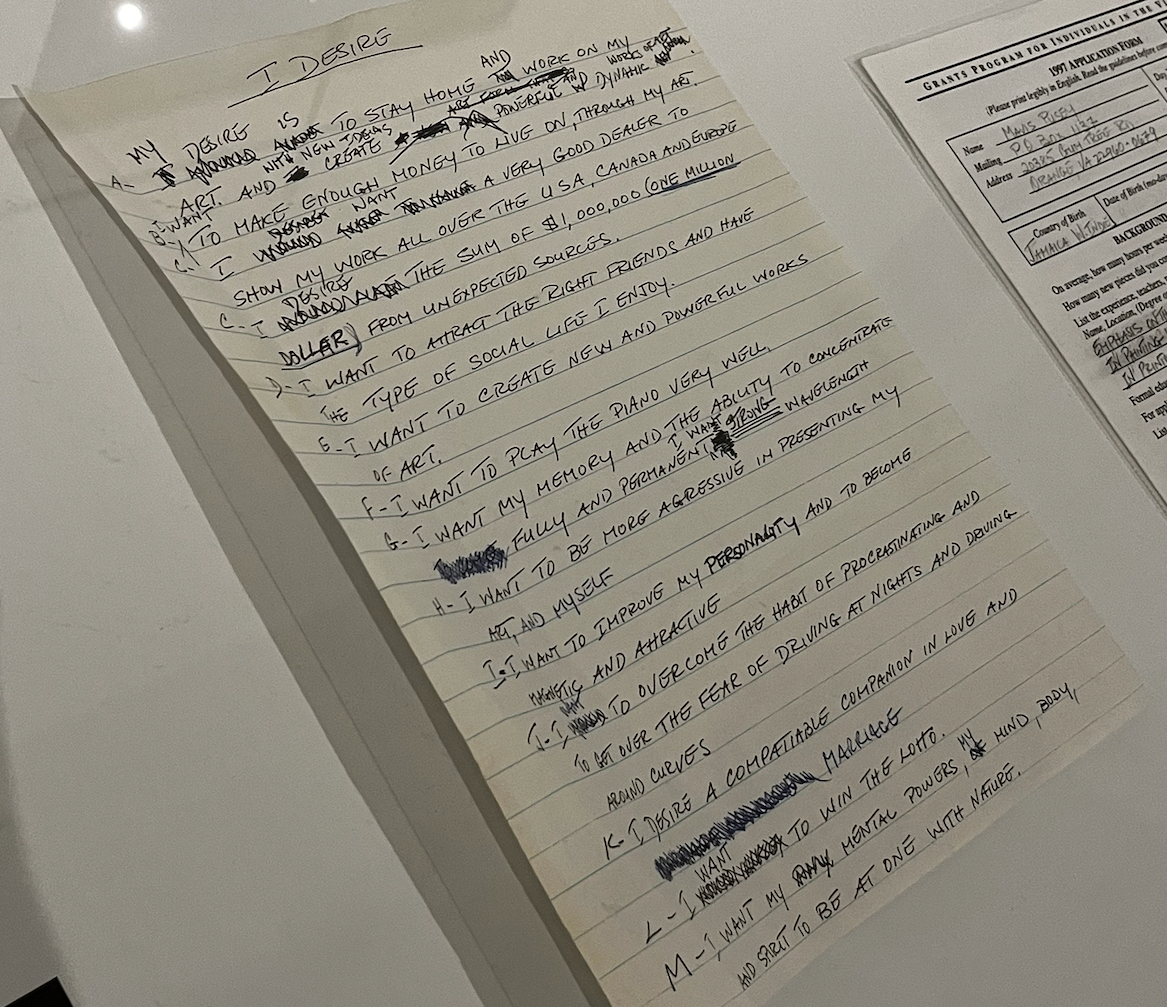 I DESIRE
A- MY DESIRE IS TO STAY HOME AND WORK ON MY
ART. AND WITH NEW IDEAS CREATE POWERFUL AND DYNAMIC WORKS OF ART
B- I WANT TO MAKE ENOUGH MONEY TO LIVE ON, THROUGH MY ART.
C- I WANT A VERY GOOD DEALER TO
SHOW MY WORK ALL OVER THE USA, CANADA AND EUROPE
C- I DESIRE THE SUM OF $1,000,000 (ONE MILLION
DOLLAR) FROM UNEXPECTED SOURCES.
D- I WANT TO ATTRACT THE RIGHT FRIENDS AND HAVE
THE TYPE OF SOCIAL LIFE I ENJOY.
E- I WANT TO CREATE NEW AND POWERFUL WORKS
OF ART.
F- I WANT TO PLAY THE PIANO VERY WELL.
G- I WANT MY MEMORY AND THE ABILITY TO CONCENTRATE
FULLY AND PERMANENT I WANT STRONG WAVELENGTH
H- I WANT TO BE MORE AGRESSIVE IN PRESENTING MY
ART, AND MYSELF
I- I WANT TO IMPROVE MY PERSONALITY AND TO BECOME
MAGNETIC AND ATTRACTIVE
J- I WANT TO OVERCOME THE HABIT OF PROCRASTINATING AND
TO GET OVER THE FEAR OF DRIVING AT NIGHTS AND DRIVING
AROUND CURVES
K- I DESIRE A COMPATIABLE COMPANION IN LOVE AND
MARRIAGE
L- I WANT TO WIN THE LOTTO.
M- I WANT MY MENTAL POWERS, MY MIND, BODY,
AND SPIRIT TO BE AT ONE WITH NATURE.
GRANTS PROGRAM FOR INDIVIDUALS IN THE
1997 APPLICATION FORM
(Please print legibly in English. Read the guidelines before
Name MAVIS PUSEY
Mailing P.O BOX 1137
Address 20385 GUM TREE RD
ORANGE, VA 22960-0679
Country of Birth
JAMAICA W.INDIE
Date of Birth
BACKGROUND
On average, how many hours per
How many new pieces did you
List the experience, teachers,
Name, Location, (Degree
EMPHASIS ON
IN PAINTING
IN PRINT
Formal
For